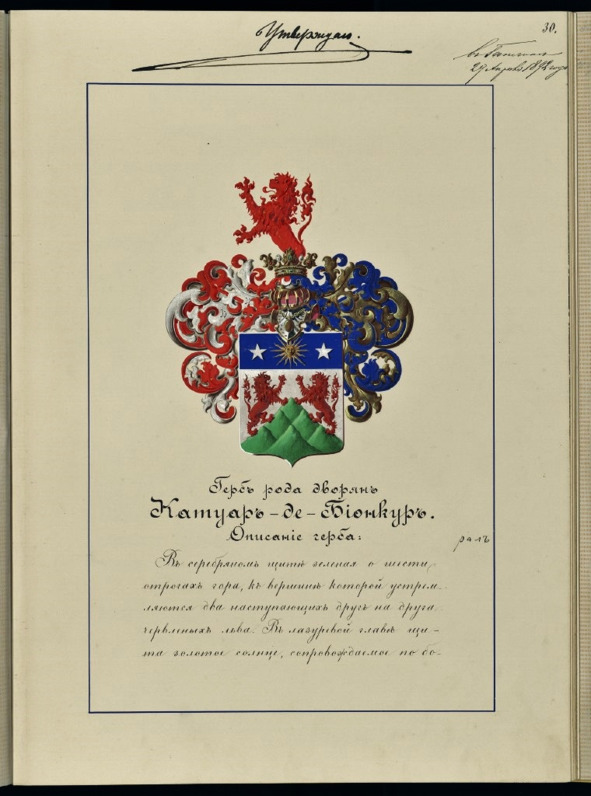 Утверждаю.
30.
въ Гатчинѣ
29 Апрѣля 1892 года
Гербъ рода дворянъ
Катуаръ-де-Біонкуръ.
Описаніе герба:
ралъ
Въ серебряномъ щитѣ зеленая о шести
отрогахъ гора, къ вершинѣ которой устрем-
ляются два наступающихъ другъ на друга
червленыхъ льва. Въ лазуревой главѣ щи-
та золотое солнце, сопровождаемое по бо-